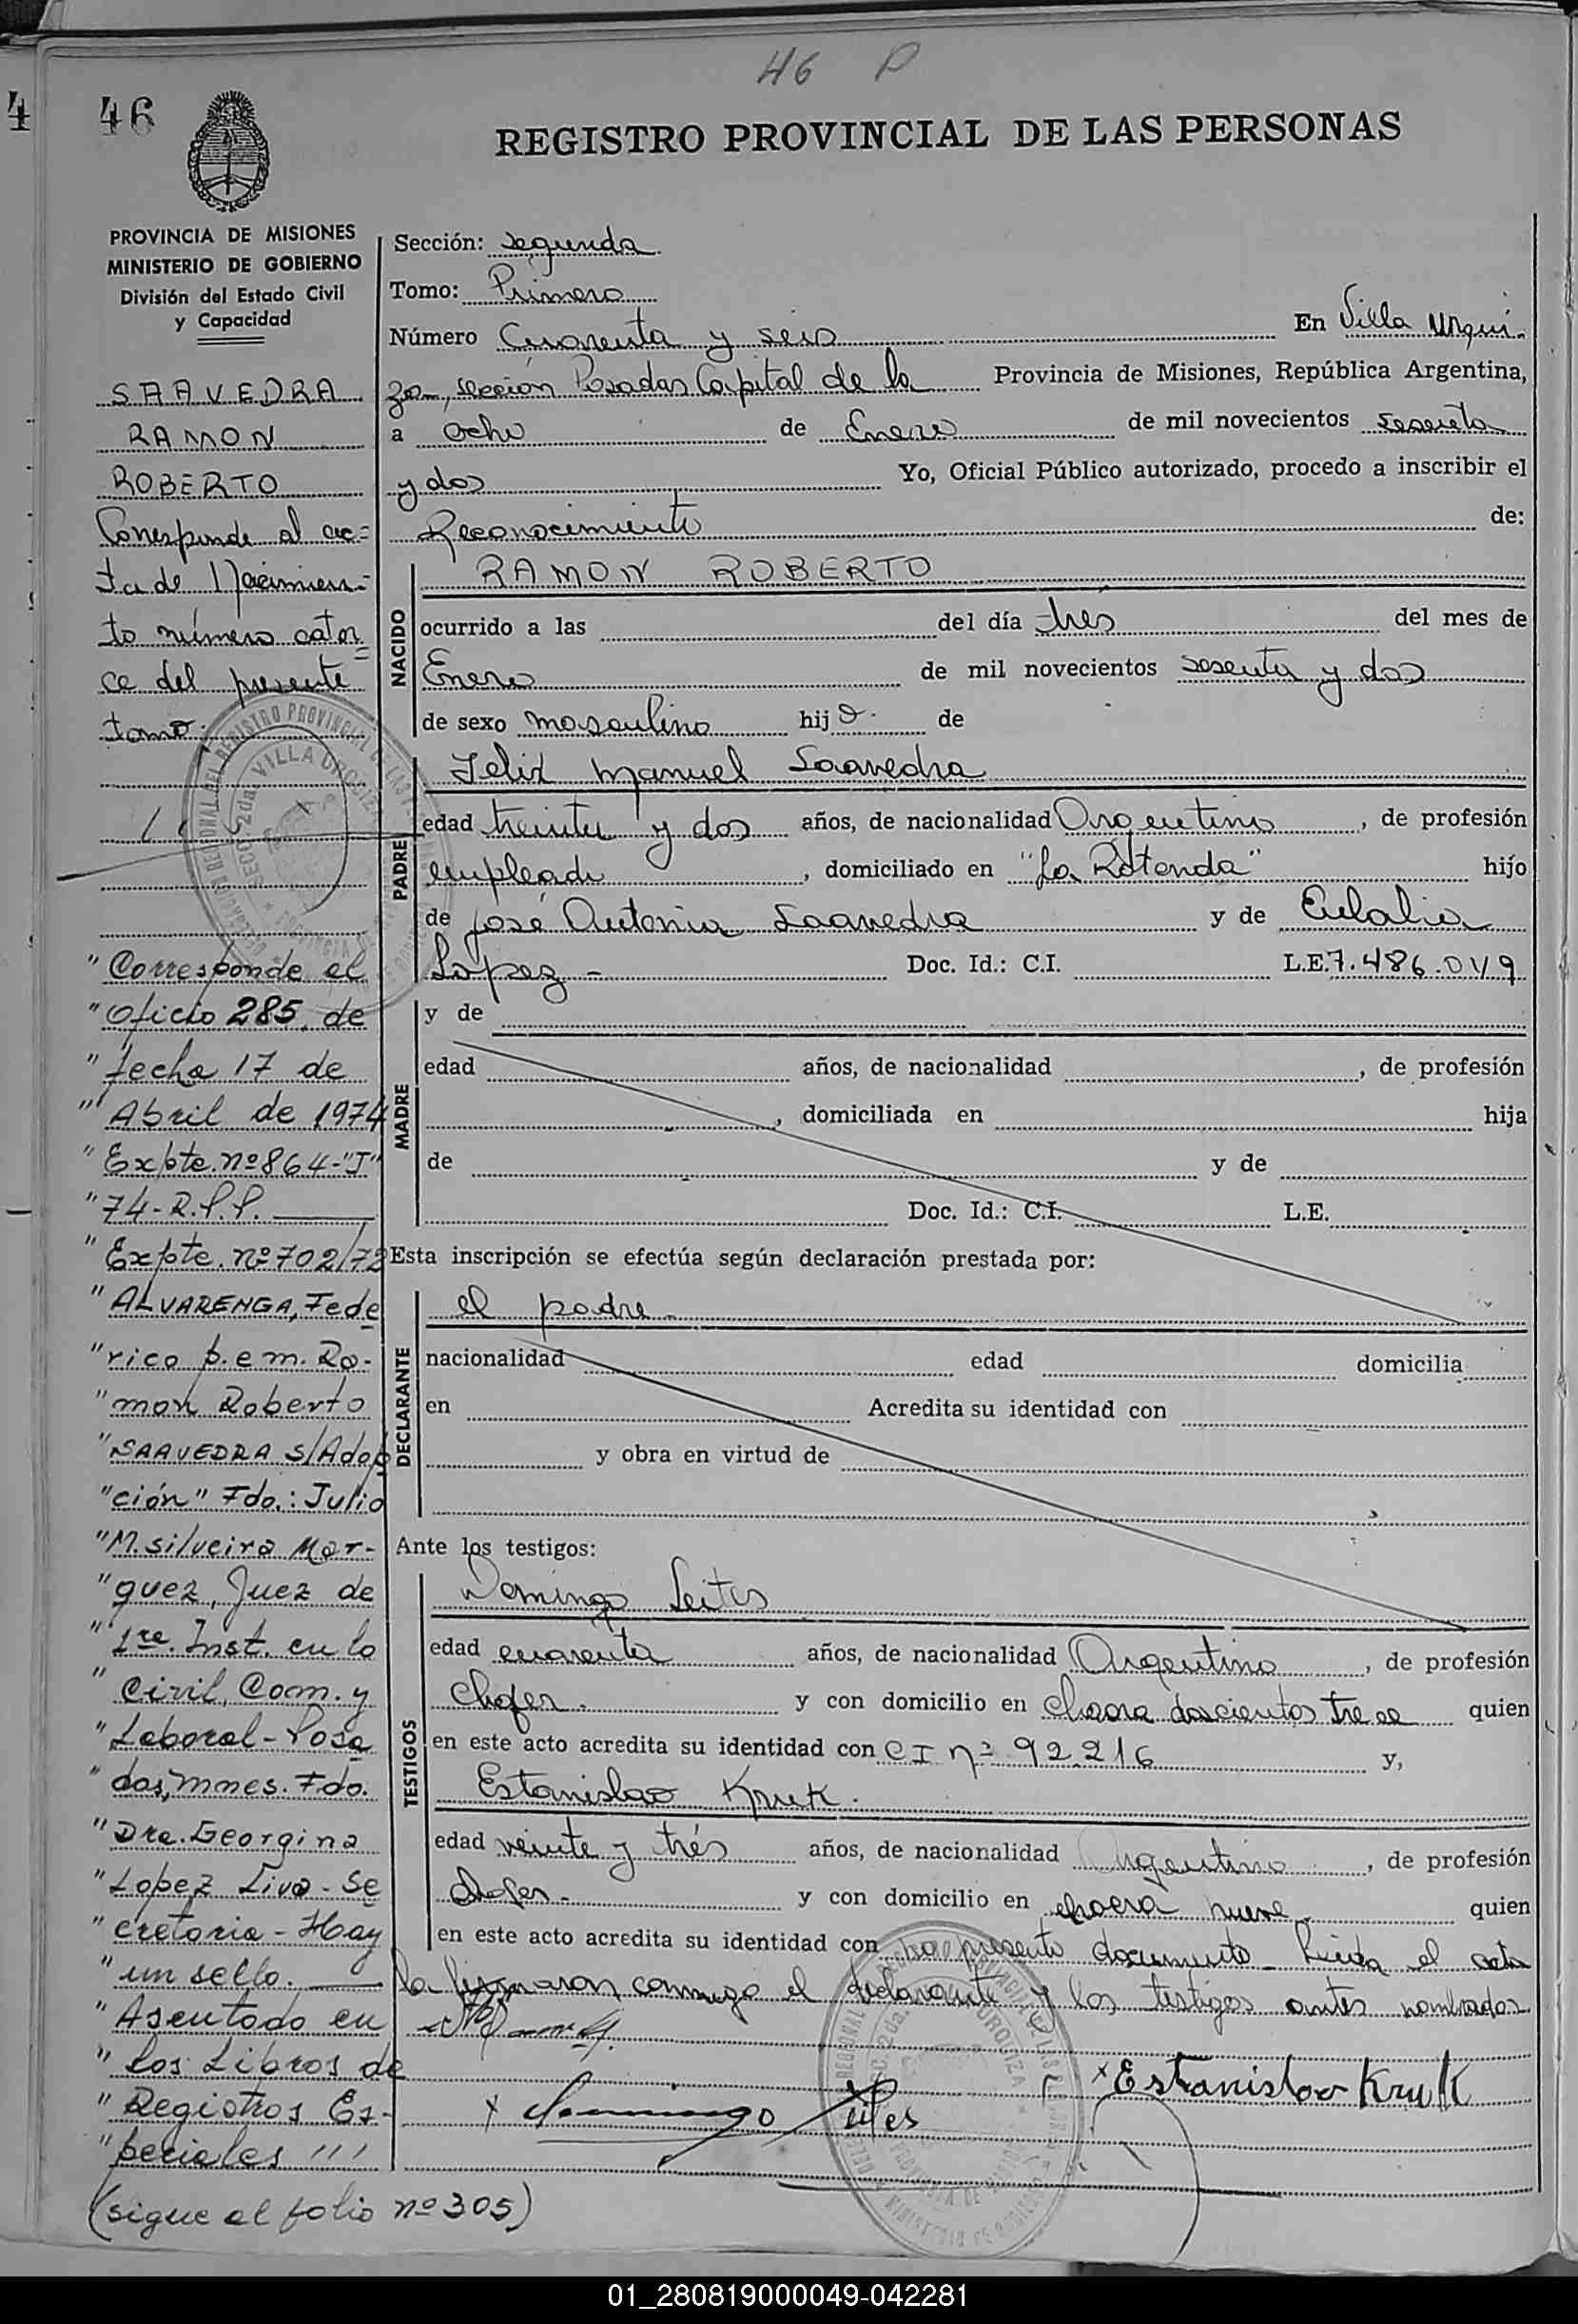 46 P
4
46
REGISTRO PROVINCIAL DE LAS PERSONAS
PROVINCIA DE MISIONES
MINISTERIO DE GOBIERNO
División del Estado Civil
y Capacidad
SAAVEDRA
RAMON
ROBERTO
Corresponde al ac=
ta de Nacimien=
to número cator
ce del presente
tomo.
"Corresponde al
"Oficio 285, de
"fecha 17 de
"Abril de 1974
"Expte. nº 864-"J"
"74-R.P.P.
"Expte. nº 702/72
"ALVARENGA, Fede
"rico p. e m. Ra-
"mon Roberto
"SAAVEDRA s/Adop
"ción" Fdo.: Julio
"M. Silveira Mar-
"quez, Juez de
"1ra. Inst. en lo
"Civil, Com. y
"Laboral - Posa
"das, Mnes. Fdo.
"Dra. Georgina
"Lopez Liva - Se
"cretaria - Hay
"un sello.
"Asentado en
"los Libros de
"Registros Es-
"peciales"
(sigue al folio nº 305)
Sección: segunda
Tomo: Primero
Número Cuarenta y seis En Villa Urqui-
za, sección Posadas Capital de la Provincia de Misiones, República Argentina,
a ocho de Enero de mil novecientos sesenta
y dos Yo, Oficial Público autorizado, procedo a inscribir el
Reconocimiento de:
NACIDO
RAMON ROBERTO
ocurrido a las del día tres del mes de
Enero de mil novecientos sesenta y dos
de sexo masculino hijo de
PADRE
Felix Manuel Saavedra
edad treinta y dos años, de nacionalidad Argentino, de profesión
empleado, domiciliado en "La Rotonda" hijo
de José Antonio Saavedra y de Eulalia
Lopez - Doc. Id.: C.I. L.E. 7.486.049
MADRE
y de
edad años, de nacionalidad , de profesión
, domiciliada en hija
de y de
Doc. Id.: C.I. L.E.
Esta inscripción se efectúa según declaración prestada por:
DECLARANTE
el padre
nacionalidad edad domicilia
en Acredita su identidad con
y obra en virtud de
Ante los testigos:
TESTIGOS
Domingo Leites
edad cuarenta años, de nacionalidad Argentino, de profesión
Chofer. y con domicilio en chacra doscientos trece quien
en este acto acredita su identidad con C I nº 92.216 y,
Estanislao Kruk.
edad veinte y trés años, de nacionalidad Argentino, de profesión
chofer. y con domicilio en chacra nueve quien
en este acto acredita su identidad con no presento documento. Leída el acta
la firmaron conmigo el declarante y los testigos antes nombrados
x Domingo Leites
x Estanislao Kruk
01_280819000049-042281